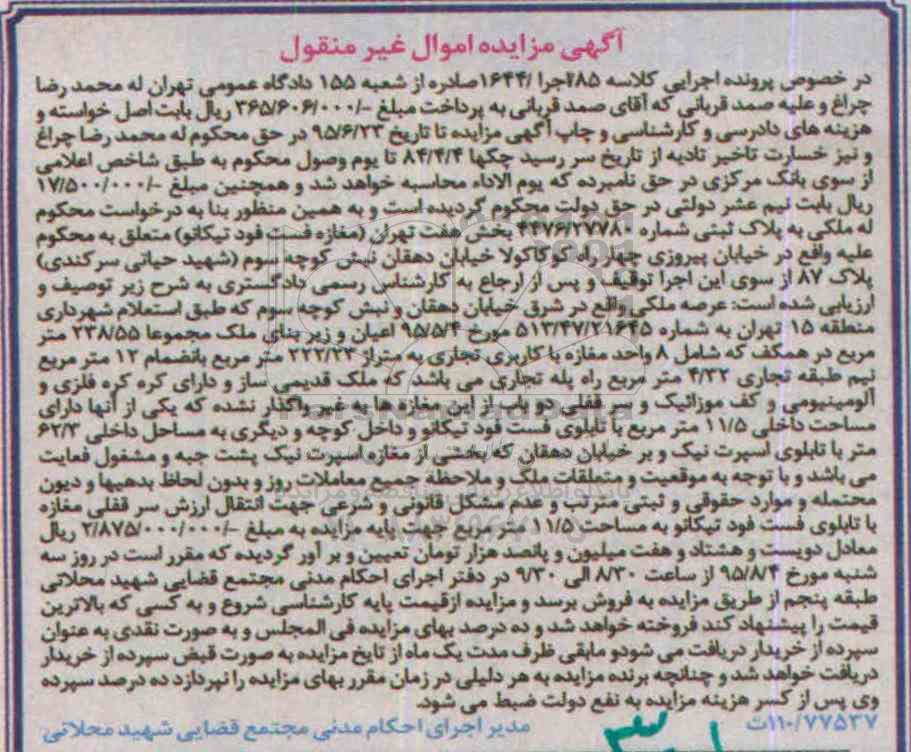 آگهی مزایده اموال غیر منقول
در خصوص پرونده اجرایی کلاسه 85اجرا /۱۶۴۴صادره از شعبه ۱۵۵ دادگاه عمومی تهران له محمد رضا
چراغ و علیه صمد قربانی که آقای صمد قربانی به پرداخت مبلغ -/۳۶۵/۶۰۶/۰۰۰ ریال بابت اصل خواسته و
هزینه های دادرسی و کارشناسی و چاپ آگهی مزایده تا تاریخ ۹۵/۶/۲۳ در حق محکوم له محمد رضا چراغ
و نیز خسارت تاخیر تادیه از تاریخ سر رسید چکها ۸۴/۴/۴ تا یوم وصول محکوم به طبق شاخص اعلامی
از سوی بانک مرکزی در حق نامبرده که یوم الاداء محاسبه خواهد شد و همچنین مبلغ -/۱۷/۵۰۰/۰۰۰
ریال بابت نیم عشر دولتی در حق دولت محکوم گردیده است و به همین منظور بنا به درخواست محکوم
له ملکی به پلاک ثبتی شماره ۴۴۷۶/۲۷۷۸۰ بخش هفت تهران (مغازه فست فود تیکانو) متعلق به محکوم
علیه واقع در خیابان پیروزی چهار راه کوکاکولا خیابان دهقان نبش کوچه سوم (شهید حیاتی سرکندی)
پلاک ۸۷ از سوی این اجرا توقیف و پس از ارجاع به کارشناس رسمی دادگستری به شرح زیر توصیف و
ارزیابی شده است: عرصه ملکی واقع در شرق خیابان دهقان و نبش کوچه سوم که طبق استعلام شهرداری
منطقه ۱۵ تهران به شماره ۵۱۳/۴۷/۲۱۶۴۵ مورخ ۹۵/۵/۴ اعیان و زیر بنای ملک مجموعا ۲۳۸/۵۵ متر
مربع در همکف که شامل ۸ واحد مغازه با کاربری تجاری به متراژ ۲۲۲/۲۳ متر مربع بانضمام ۱۲ متر مربع
نیم طبقه تجاری ۴/۳۲ متر مربع راه پله تجاری می باشد که ملک قدیمی ساز و دارای کره کره فلزی و
آلومینیومی و کف موزائیک و سر قفلی دو باب از این مغازه ها به غیر واگذار نشده که یکی از آنها دارای
مساحت داخلی ۱۱/۵ متر مربع با تابلوی فست فود تیکانو و داخل کوچه و دیگری به مساحل داخلی ۶۲/۳
متر با تابلوی اسپرت نیک و بر خیابان دهقان که بخشی از مغازه اسپرت نیک پشت جبه و مشغول فعایت
می باشد و با توجه به موقعیت و متعلقات ملک و ملاحظه جمیع معاملات روز و بدون لحاظ بدهیها و دیون
محتمله و موارد حقوقی و ثبتی مترتب و عدم مشکل قانونی و شرعی جهت انتقال ارزش سر قفلی مغازه
با تابلوی فست فود تیکانو به مساحت ۱۱/۵ متر مربع جهت پایه مزایده به مبلغ -/۲/۸۷۵/۰۰۰/۰۰۰ ریال
معادل دویست و هشتاد و هفت میلیون و پانصد هزار تومان تعیین و بر آور گردیده که مقرر است در روز سه
شنبه مورخ ۹۵/۸/۴ از ساعت ۸/۳۰ الی ۹/۳۰ در دفتر اجرای احکام مدنی مجتمع قضایی شهید محلاتی
طبقه پنجم از طریق مزایده به فروش برسد و مزایده ازقیمت پایه کارشناسی شروع و به کسی که بالاترین
قیمت را پیشنهاد کند فروخته خواهد شد و ده درصد بهای مزایده فی المجلس و به صورت نقدی به عنوان
سپرده از خریدار دریافت می شودو مابقی ظرف مدت یک ماه از تایخ مزایده به صورت قبض سپرده از خریدار
دریافت خواهد شد و چنانچه برنده مزایده به هر دلیلی در زمان مقرر بهای مزایده را نپردازد ده درصد سپرده
وی پس از کسر هزینه مزایده به نفع دولت ضبط می شود.
۱۱۰/۷۷۵۳۷ت مدیر اجرای احکام مدنی مجتمع قضایی شهید محلاتی